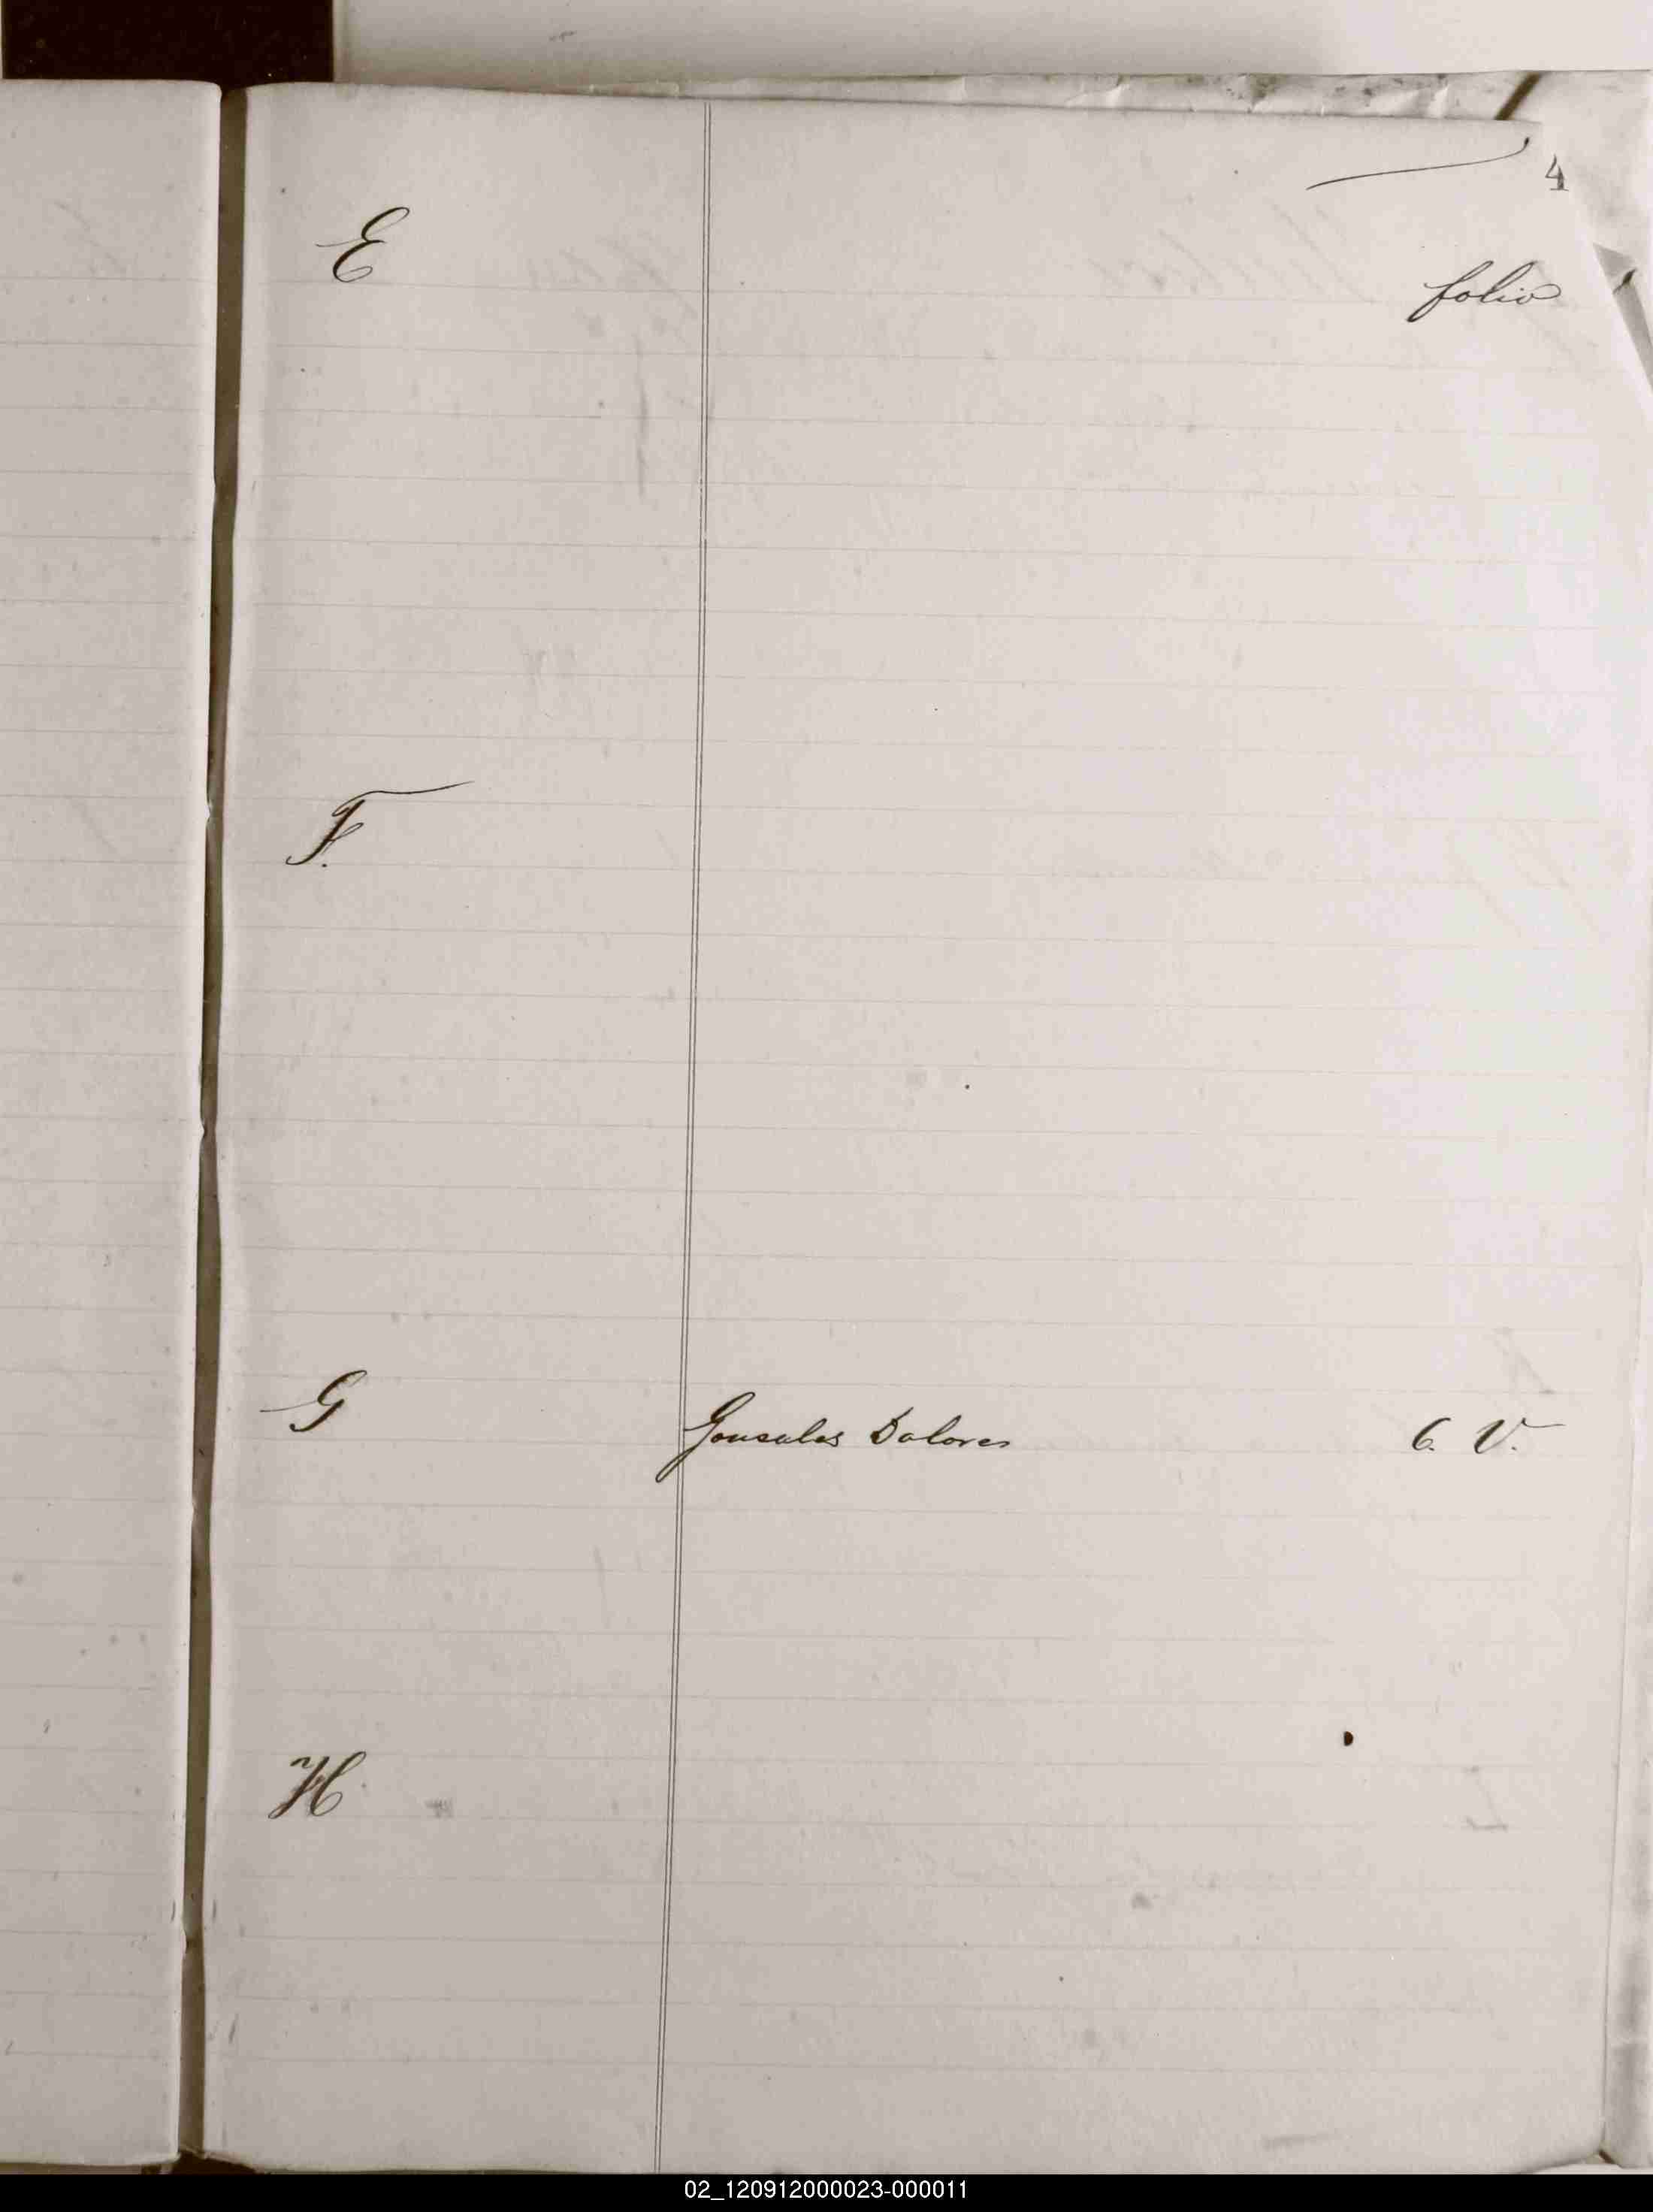 4
E
folio
F.
G Gonsales Dolores 6. V.
H
02_120912000023-000011